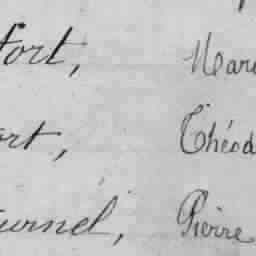 fort, Mari
ort, Théod
urnel, Pierre